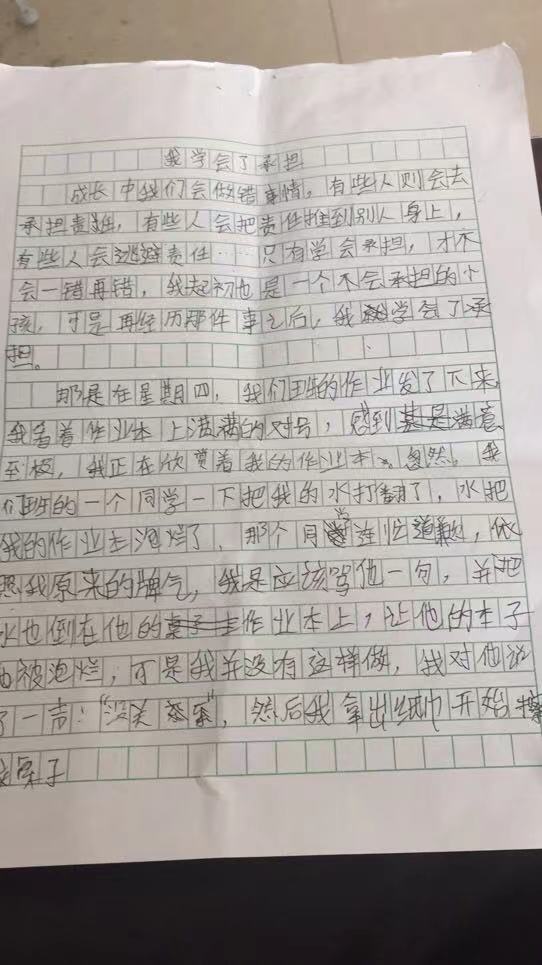 我学会了承担
成长中我们会做错事情。有些人则会去
承担责任，有些人会把责任推到别人身上，
有些人会逃避责任……只有学会承担，才不
会一错再错，我起初也是一个不会承担的小
孩，可是再经历那件事之后，我学会了承
担。
那是在星期四，我们班的作业发了下来，
我看着作业本上满满的对号，感到满意
至极，我正在欣赏着我的作业本。忽然，我
们班的一个同学一下把我的水打翻了，水把
我的作业本泡烂了，那个同学连忙道歉，依
照我原来的脾气，我是应该骂他一句，并把
水也倒在他的作业本上，让他的本子
也被泡烂，可是我并没有这样做，我对他说
了一声：“没关系”，然后我拿出纸巾开始擦
桌子